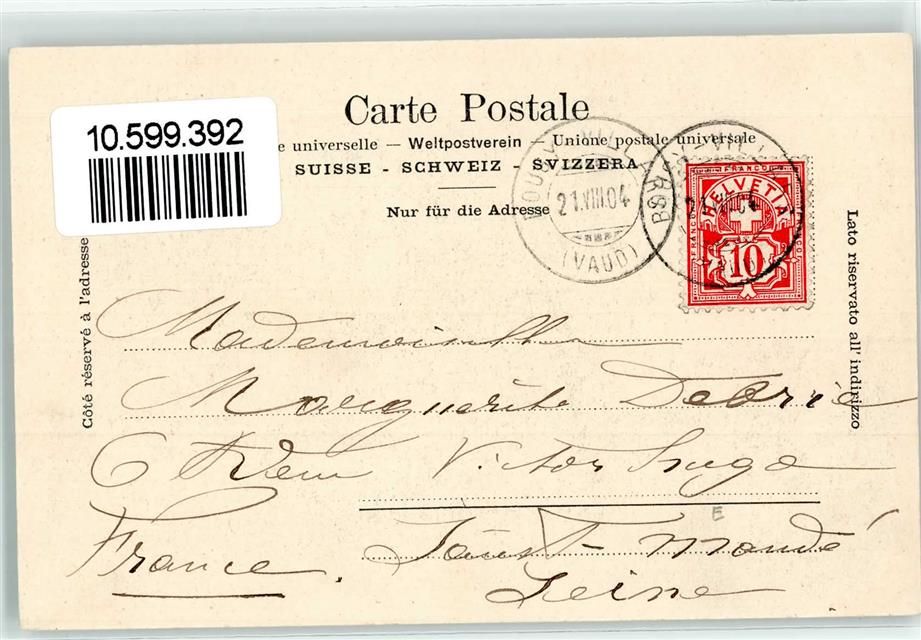 Carte Postale
10.599.392
e universelle — Weltpostverein — Unione postale universale
SUISSE - SCHWEIZ - SVIZZERA
Nur für die Adresse
21.VIII.04
(VAUD)
FRANCO
HELVETIA
10
Côté réservé à l'adresse
Lato riservato all' indirizzo
Mademoiselle
Marguerite
6 Victor Hugo
France. Saint-Mandé
Seine
E